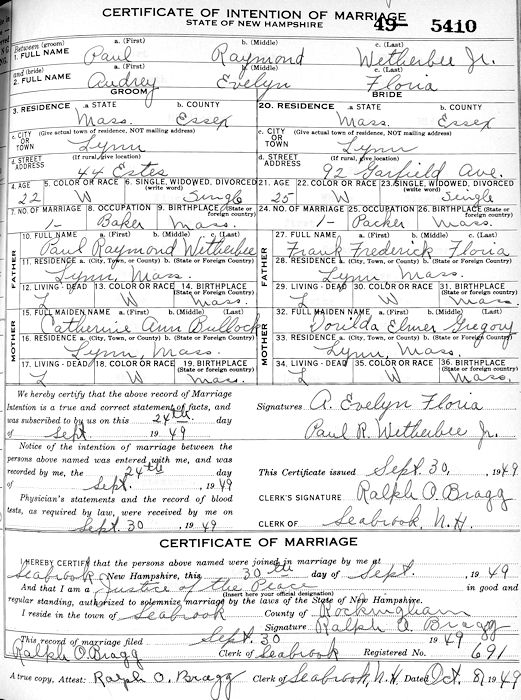 CERTIFICATE OF INTENTION OF MARRIAGE
STATE OF NEW HAMPSHIRE 49- 5410
Between (groom) a. (First) b. (Middle) c. (Last)
1. FULL NAME Paul Raymond Wetherbee Jr.
and (bride) a. (First) b. (Middle) c. (Last)
2. FULL NAME Audrey Evelyn Floria
GROOM BRIDE
3. RESIDENCE a STATE b. COUNTY 20. RESIDENCE a STATE b. COUNTY
Mass. Essex Mass. Essex
c. CITY OR TOWN (Give actual town of residence, NOT mailing address) c. CITY OR TOWN (Give actual town of residence, NOT mailing address)
Lynn Lynn
d. STREET ADDRESS (If rural, give location) d. STREET ADDRESS (If rural, give location)
44 Estes 92 Garfield Ave.
4. AGE 5. COLOR OR RACE 6. SINGLE, WIDOWED, DIVORCED (write word) 21. AGE 22. COLOR OR RACE 23. SINGLE, WIDOWED, DIVORCED (write word)
22 W Single 25 W Single
7. NO. OF MARRIAGE 8. OCCUPATION 9. BIRTHPLACE (State or foreign country) 24. NO. OF MARRIAGE 25. OCCUPATION 26. BIRTHPLACE (State or foreign country)
1- Baker Mass. 1- Packer Mass.
10. FULL NAME a. (First) b. (Middle) c. (Last) 27. FULL NAME a. (First) b. (Middle) c. (Last)
Paul Raymond Wetherbee Frank Frederick Floria
FATHER 11. RESIDENCE a. (City, Town, or County) (State or Foreign Country) FATHER 28. RESIDENCE a. (City, Town, or County) (State or Foreign Country)
Lynn, Mass. Lynn Mass.
12. LIVING - DEAD 13. COLOR OR RACE 14. BIRTHPLACE (State or Foreign Country) 29. LIVING - DEAD 30. COLOR OR RACE 31. BIRTHPLACE (State or Foreign Country)
L W Mass. L W Mass.
15. FULL MAIDEN NAME a. (First) b. (Middle) c. (Last) 32. FULL MAIDEN NAME a. (First) b. (Middle) (Last)
Catherine Ann Bullock Dorilda Elmer Gregory
MOTHER 16. RESIDENCE a. (City, Town, or County) b (State or Foreign Country) MOTHER 33. RESIDENCE a. (City, Town, or County) (State or Foreign Country)
Lynn, Mass. Lynn, Mass.
17. LIVING - DEAD 18. COLOR OR RACE 19. BIRTHPLACE (State or foreign Country) 34. LIVING - DEAD 35. COLOR OR RACE 36. BIRTHPLACE (State or Foreign Country)
L W Mass. L W Mass.
We hereby certify that the above record of Marriage
Intention is a true and correct statement of facts, and
was subscribed to by us on this 24th day
of Sept. 1949
Signatures A. Evelyn Floria
Paul R. Wetherbee Jr.
Notice of the intention of marriage between the
persons above named was entered with me, and was
recorded by me, the 24th day
of Sept. 1949
This Certificate issued Sept. 30, 1949
Physician's statements and the record of blood
tests, as required by law, were received by me on
Sept. 30 1949
CLERK'S SIGNATURE Ralph O. Bragg
CLERK OF Seabrook, N.H.
CERTIFICATE OF MARRIAGE
HEREBY CERTIFY that the persons above named were joined in marriage by me at
Seabrook New Hampshire, this 30th day of Sept. 1949
And that I am a Justice of the Peace in good and
(Insert here your official designation)
regular standing, authorized to solemnize marriage by the laws of the State of New Hampshire.
I reside in the town of Seabrook County of Rockingham
Signature Ralph O. Bragg
This record of marriage filed Sept. 30 1949
Ralph O. Bragg Clerk of Seabrook Registered No. 691
A true copy, Attest: Ralph O. Bragg Clerk of Seabrook, N.H. Dated Oct. 8, 1949